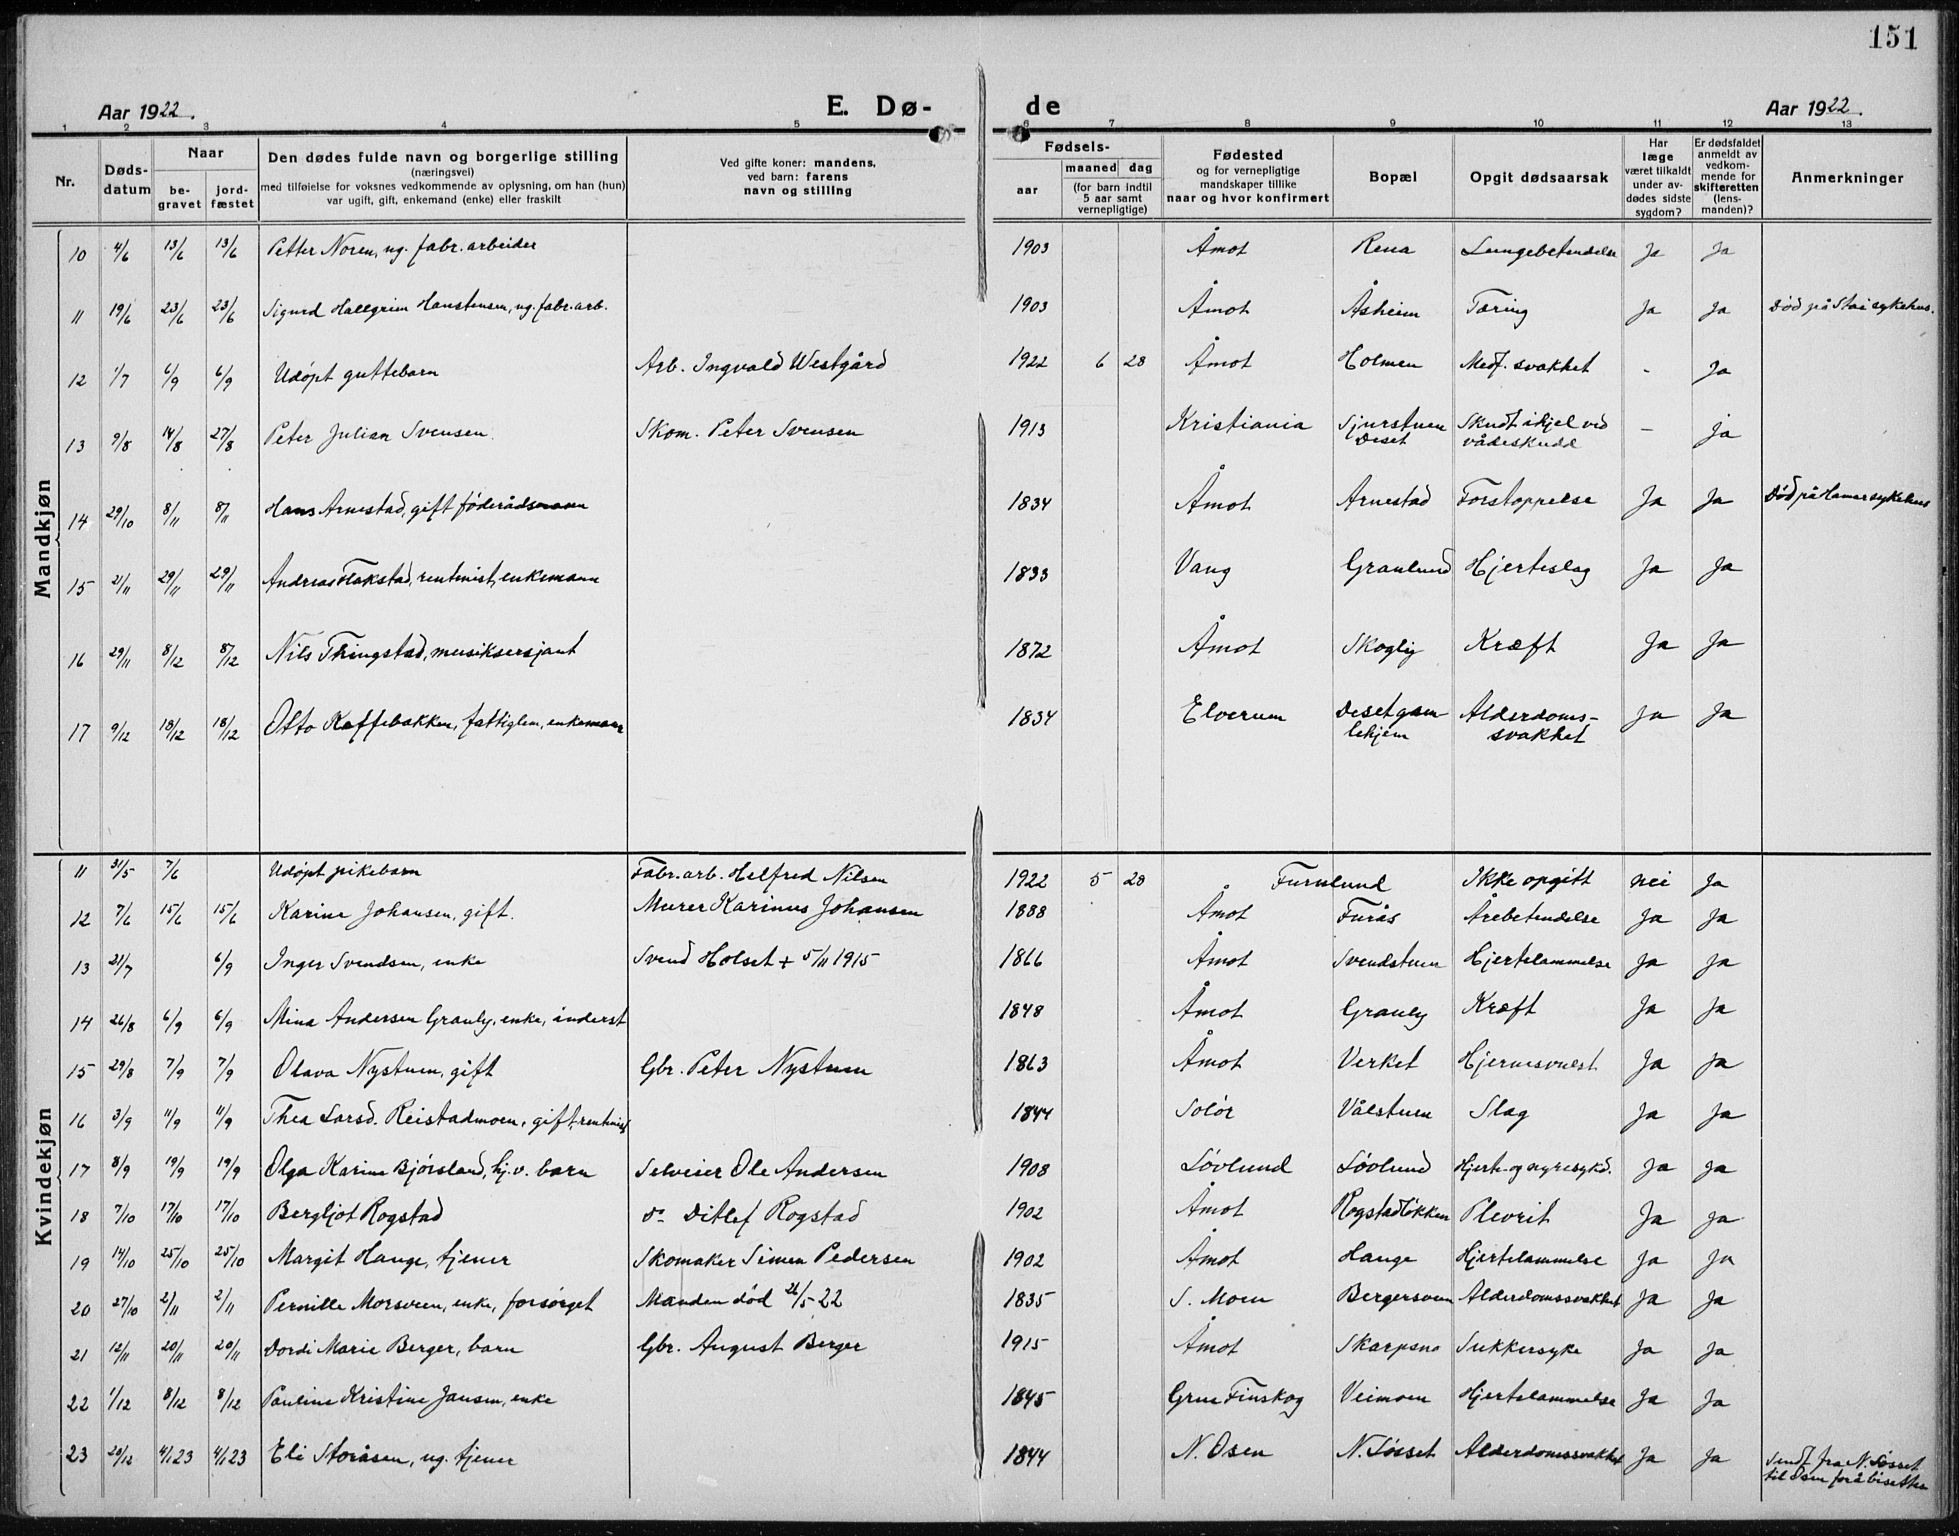 151
Aar 1922. E. Dø- de Aar 1922.
1 2 3 4 5 6 7 8 9 10 11 12 13
Nr.
Døds-
datum
Naar
be-
gravet
jord-
fæstet
Den dødes fulde navn og borgerlige stilling
(næringsvei)
med tilføielse for voksnes vedkommende av oplysning, om han (hun)
var ugift, gift, enkemand (enke) eller fraskilt
Ved gifte koner: mandens,
ved barn: farens
navn og stilling
Fødsels-
aar
maaned dag
(for barn indtil
5 aar samt
vernepligtige)
Fødested
og for vernepligtige
mandskaper tillike
naar og hvor konfirmert
Bopæl
Opgit dødsaarsak
Har
læge
været tilkaldt
under av-
dødes sidste
sygdom?
Er dødsfaldet
anmeldt av
vedkom-
mende for
skifteretten
(lens-
manden)?
Anmerkninger
Mandkjøn
10 4/6 13/6 13/6 Petter Noren, ug. fabr. arbeider 1903 Åmot Rena Lungebetendelse Ja Ja
11 19/6 23/6 23/6 Sigurd Hallgrim Hanstensen, ug. fabr. arb. 1903 Åmot Åsheim Tæring Ja Ja Død på Stai sykehus.
12 1/7 6/9 6/9 Udøpt guttebarn Arb. Ingvald Westgård 1922 6 28 Åmot Holmen Medf. svakhet - Ja
13 9/8 14/8 27/8 Peter Julian Svensen Skom. Peter Svensen 1913 Kristiania Sjurstuen Skudt ihjel ved - ja
Deset vådeskudd
14 29/10 8/11 8/11 Hans Arnestad, gift føderådsmann 1834 Åmot Arnestad Forstoppelse Ja Ja Død på Hamar sykehus
15 21/11 29/11 29/11 Andreas Flakstad, rentenist, enkemann 1833 Vang Granlund Hjerteslag Ja Ja
16 29/11 8/12 8/12 Nils Thingstad, musiksersjant 1872 Åmot Skoglig Kræft Ja Ja
17 9/12 18/12 18/12 Otto Kaffebakken, fattiglem, enkemann 1834 Elverum Deset gam Alderdoms- Ja Ja
lehjem svakhet
Kvindekjøn
11 31/5 7/6 Udøpt pikebarn Fabr. arb. Helfred Nilsen 1922 5 28 Furulund Ikke opgitt nei Ja
12 7/6 15/6 15/6 Karine Johansen, gift. Murer Karinus Johansen 1888 Åmot Furås Årebetendelse Ja Ja
13 21/7 6/9 Inger Svendsen, enke Svend Holset + 5/11 1915 1866 Åmot Svendstuen Hjertelammelse Ja Ja
14 26/8 6/9 6/9 Mina Andersen Granly, enke, inderst 1848 Åmot Granly Kræft Ja Ja
15 29/8 7/9 7/9 Olava Nystuen, gift Gbr. Peter Nystuen 1863 Åmot Verket Hjernesvulst Ja Ja
16 3/9 11/9 11/9 Thea Larsd. Reistadmoen, gift, rentenist 1844 Solør Vålstuen Slag Ja Ja
17 8/9 19/9 19/9 Olga Karine Bjørsland, hj.v. barn Selveier Ole Andersen 1908 Løvlund Løvlund Hjerte- og nyresykd. Ja Ja
18 7/10 17/10 17/10 Bergljot Rogstad do Ditlef Rogstad 1902 Åmot Rogstadløkken Plevrit Ja Ja
19 14/10 25/10 25/10 Margit Hauge, tjener Skomaker Simen Pedersen 1902 Åmot Hauge Hjertelammelse Ja Ja
20 27/10 2/11 2/11 Pernille Morsveen, enke, forsørget Manden død 26/5-22 1835 S. Moen Bergersveen Alderdomssvakhet Ja Ja
21 12/11 20/11 20/11 Dordi Marie Berger, barn Gbr. August Berger 1915 Åmot Skarpsno Sukkersyke Ja Ja
22 1/12 8/12 8/12 Pauline Kristine Jansen, enke 1845 Grue Finskog Veimoen Hjertelammelse Ja Ja
23 20/12 4/1 23 4/1 23 Eli Storåsen, ug. tjener 1844 N. Osen N. Løsset Alderdomssvakhet Ja Ja Sendt fra N. Løsset
til Osen for å bisettes